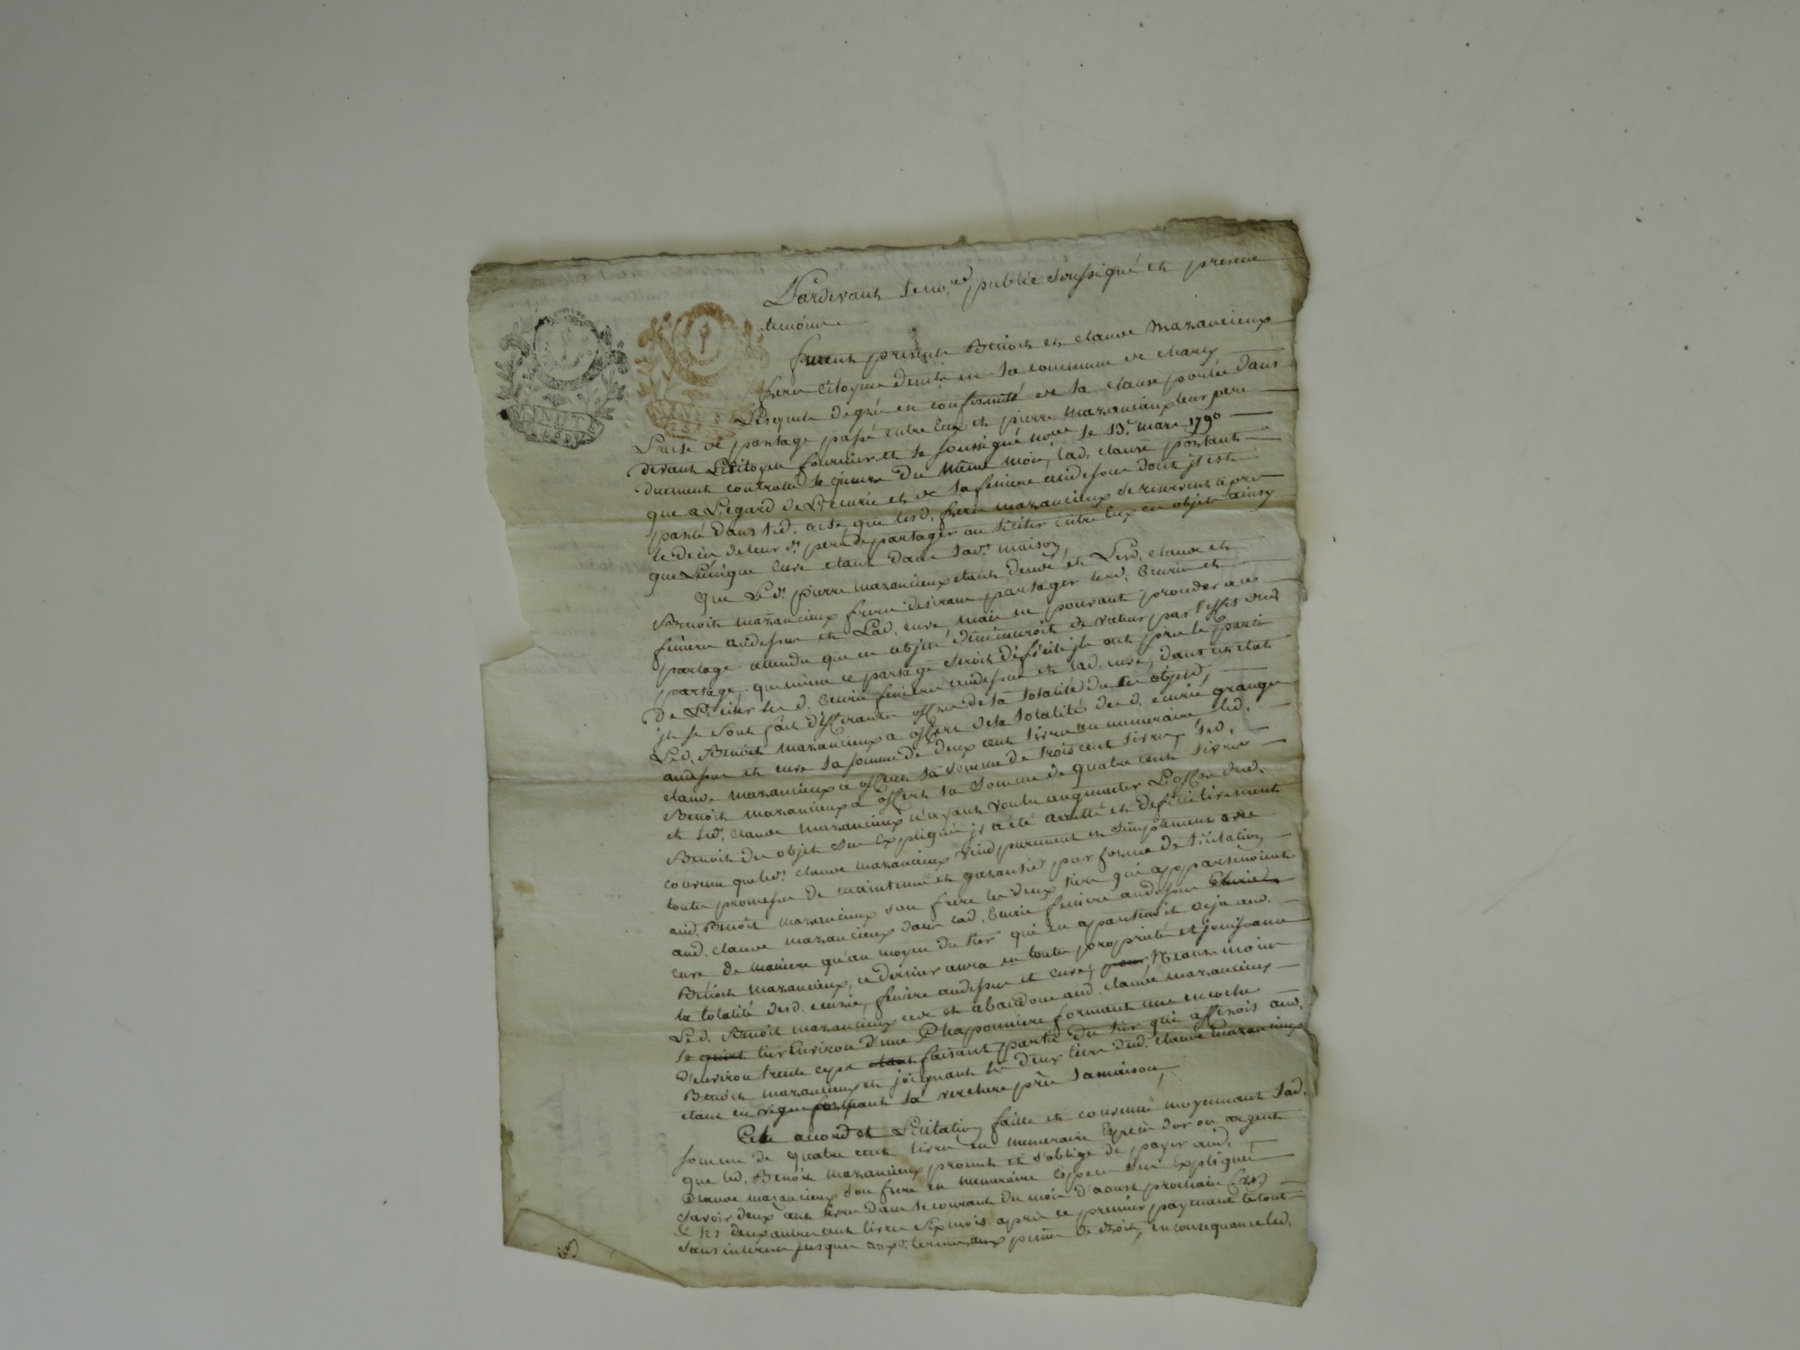 Pardevant le no.re public soussigné et presence
temoins
furent presents Benoit et claude mazancieux
freres citoyens demts en la commune de charly
Lesquels de gré en conformité de la clause portée dans
L'acte de partage passé entre Eux et pierre mazancieux leur pere
devant Le Citoyen fournier et le soussigné nore le 13e mars 1790
duement controllé le quinze du même mois, lad. clause portant
que a L'egard de L'Ecurie et de la feniere audessus dont il est
parlé dans led. acte, que lesd. freres mazancieux se reservent apres
le deces de leur d. pere de partager ou liciter entre Eux ces objets ainsy
que L'unique cuve etant dans lad. maison,
Que Le d. pierre mazancieux etant decedé et Lesd. claude et
Benoit mazancieux freres desirant partager lesd. Ecurie et
feniere audessus et Lad. cuve mais ne pouvant proceder au
partage attendu que ces objets diminueroit de valeur par l'effet dud.
partage, que même ce partage seroit difficile ils ont pris le parti
de Liciter lesd. Ecurie feniere audessus et lad. cuve, dans cet etat
ils se sont fait differantes offres de la totalité du objets,
Led. Benoit mazancieux a offert de la totalité desd. ecurie, grange
audessus et cuve la somme de deux cent livres en numeraire led.
claude mazancieux a offert la somme de trois cent livres, led.
Benoit mazancieux a offert la somme de quatre cent livres
et led. claude mazancieux n'ayant voulu augmenter L'offre dud.
Benoit des objets sus Expliqués il a été arretté et definitivement
convenu que led. claude mazancieux vend purement et simplement avec
toutes promesses de maintenue et garantie par forme de licitation
aud. Benoit mazancieux son frere les deux tiers qui appartenoient
aud. claude mazancieux dans lad. Ecurie feniere audessus
cuve de maniere qu'au moyen du tiers qui en appartenoit deja aud.
Benoit mazancieux, ce dernier aura en toute propriété et jouissance
la totalité desd. ecurie, feniere audessus et cuve, Neanmoins
Led. Benoit mazancieux cede et abandonne aud. claude mazancieux
le tiers Environ d'une Chaponniere formant une encoche
d'environ trente ceps faisant partie du tiers qui affenoit aud.
Benoit mazancieux et joignant les deux tiers dud. claude mazancieux
etant en vigne formant la verchere près la maison,
Cette accord et Licitation faitte et convenue moyennant lad.
somme de quatre cent livres en numeraire Especes d'or ou argent
que led. Benoit mazancieux promet et s'oblige de payer aud.
Claude mazancieux son frere en numeraire Especes sus Expliqué
savoir deux cent livres dans le courant du mois d'aoust prochain
& les deux autres cent livres six mois après ce premier payement le tout
sans interets jusques auxd. termes, aux peines de droit, en consequance led.